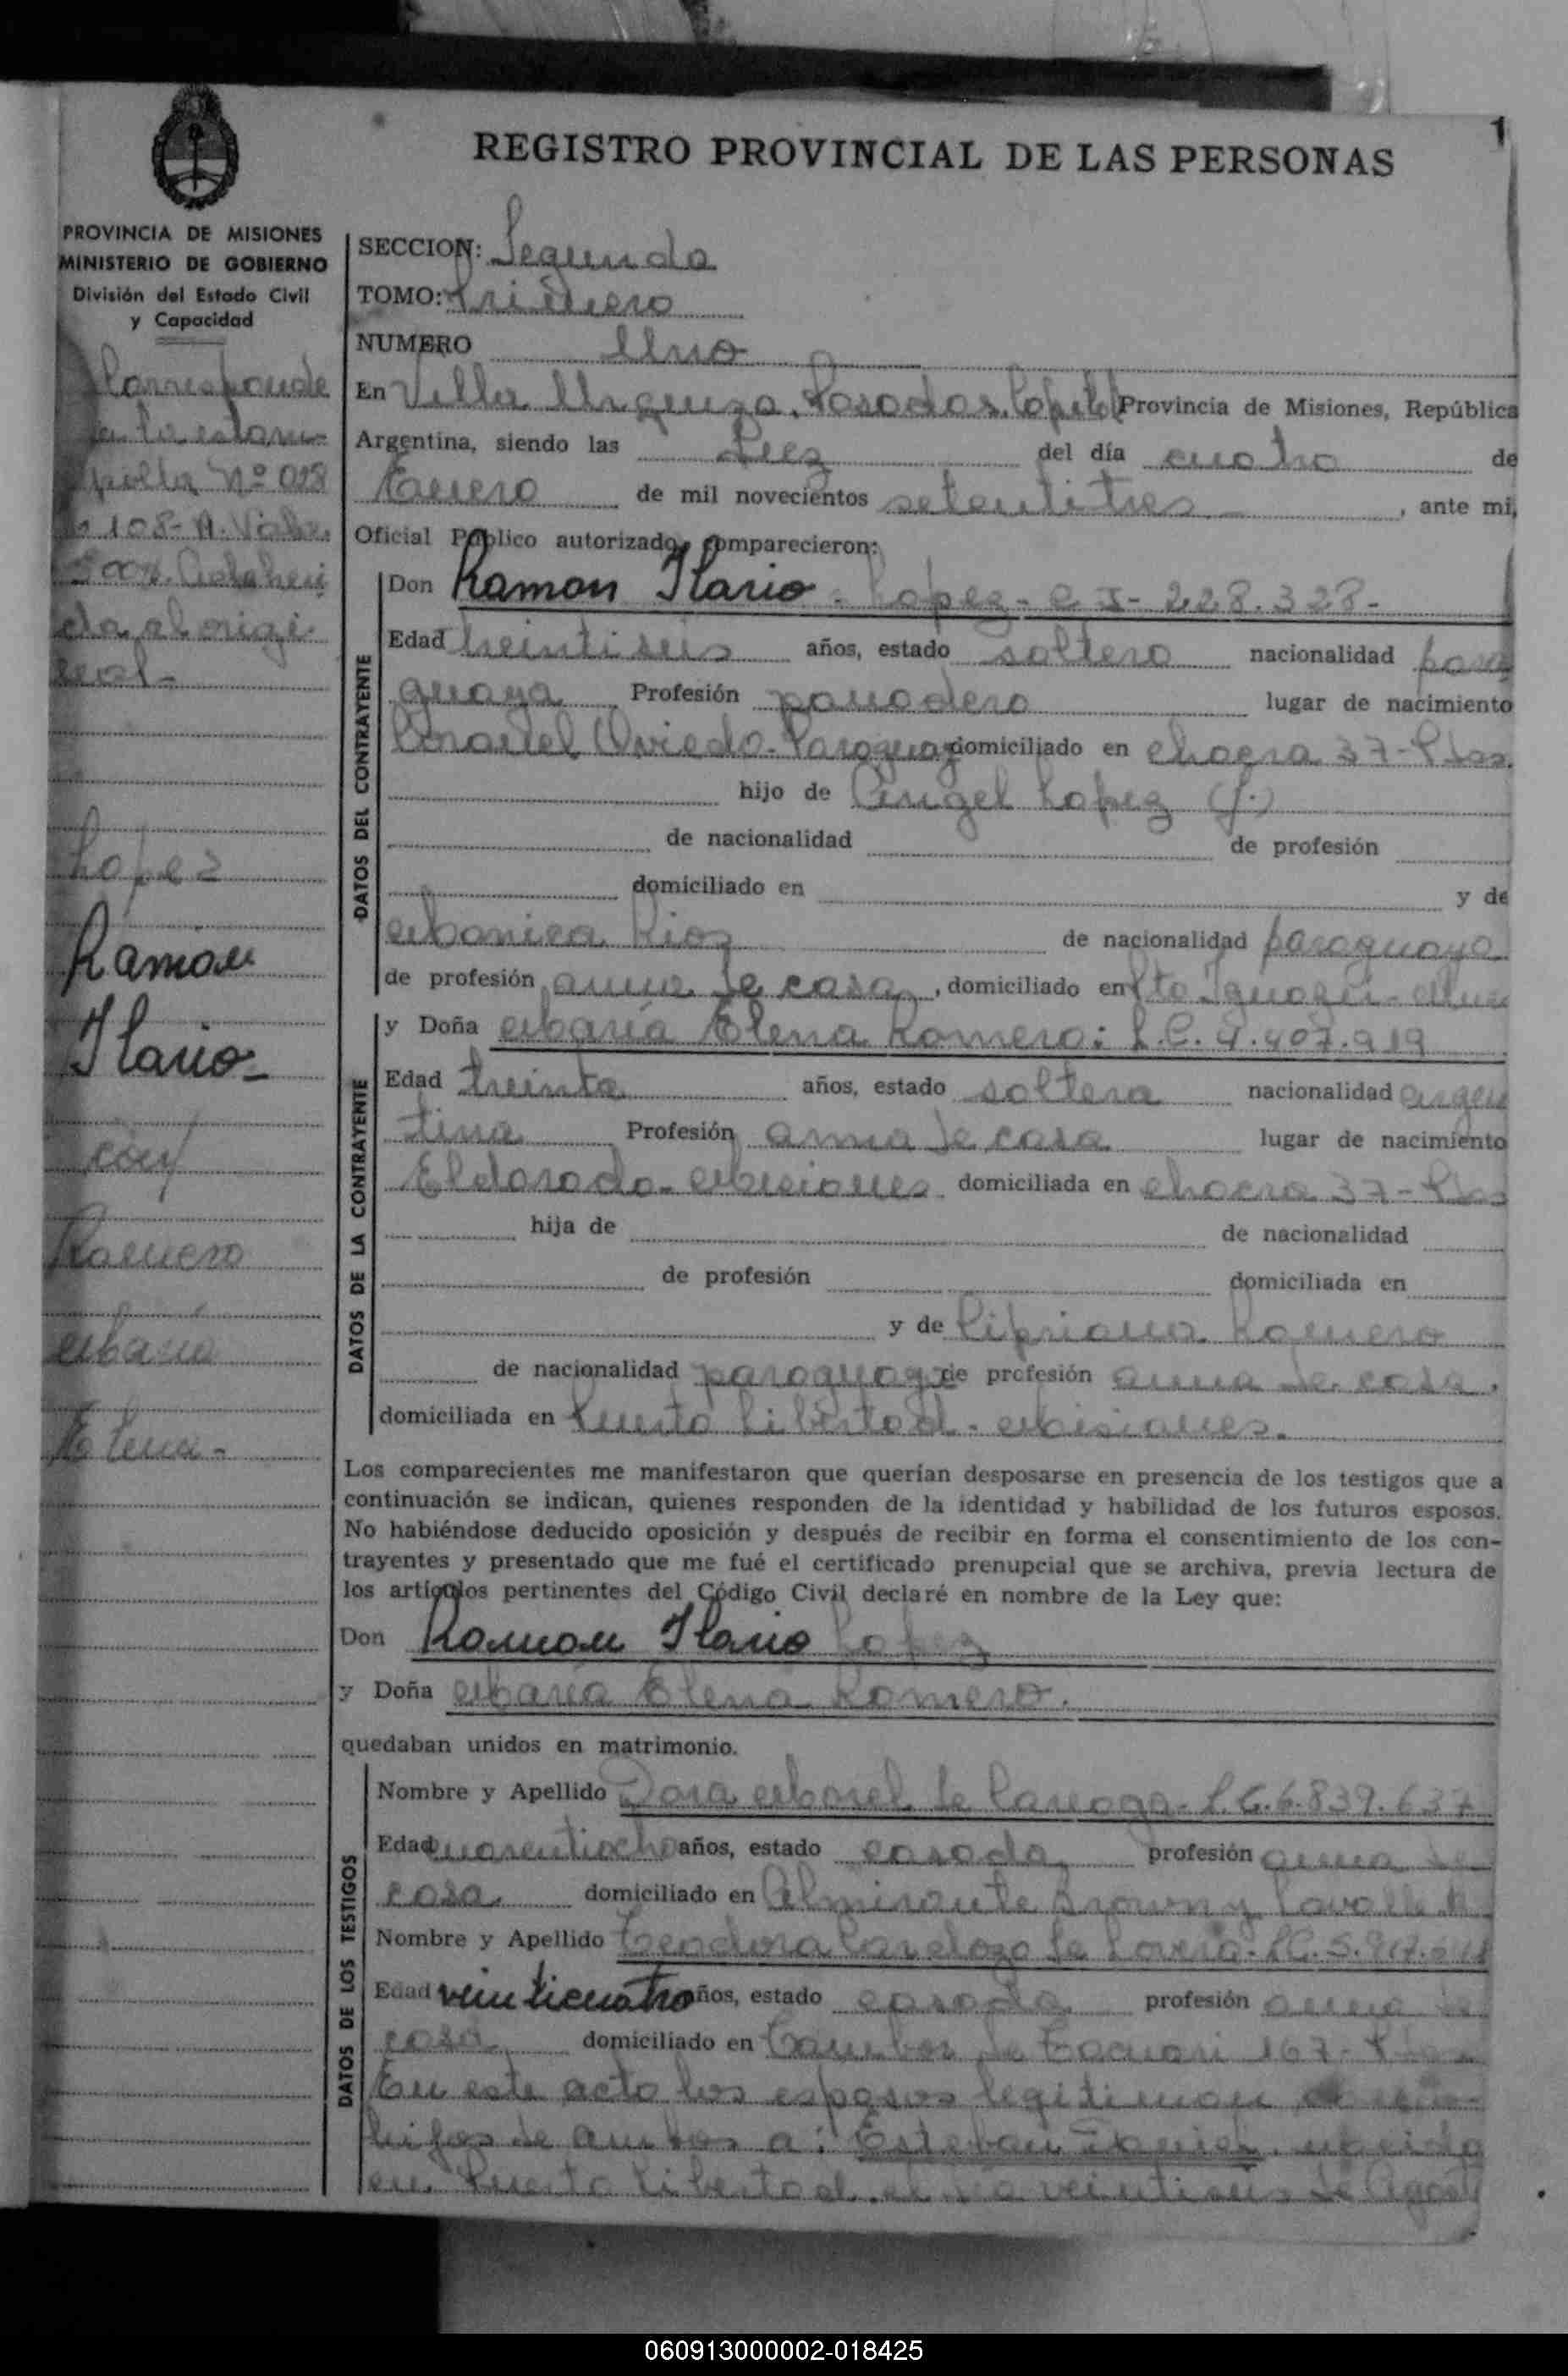 1
REGISTRO PROVINCIAL DE LAS PERSONAS
PROVINCIA DE MISIONES
MINISTERIO DE GOBIERNO
División del Estado Civil
y Capacidad
Corresponde
a la estam-
pilla Nº 028
108-A. Valor
adheri
da al origi-
nal-
Lopez
Ramón
Ilario-
con
Romero
María
Elena-
SECCION: Segunda
TOMO: Primero
NUMERO Uno
En Villa Urquiza, Posadas, Capital Provincia de Misiones, República
Argentina, siendo las diez del día cuatro de
Enero de mil novecientos setentitres , ante mi,
Oficial Público autorizado, comparecieron:
DATOS DEL CONTRAYENTE
Don Ramon Ilario Lopez - C I - 228.328-
Edad treintiseis años, estado soltero nacionalidad para
guaya Profesión panadero lugar de nacimiento
Coronel Oviedo-Paraguay domiciliado en chacra 37-Pdas.
hijo de Angel Lopez (f.)
de nacionalidad de profesión
domiciliado en y de
Monica Rios de nacionalidad paraguaya
de profesión ama de casa, domiciliado en Pto Iguazú-
DATOS DE LA CONTRAYENTE
y Doña María Elena Romero: L.C. 4.407.919
Edad treinta años, estado soltera nacionalidad argen
tina Profesión ama de casa lugar de nacimiento
Eldorado-Misiones domiciliada en chacra 37-Pdas
hija de de nacionalidad
de profesión domiciliada en
y de Cipriana Romero
de nacionalidad paraguaya de profesión ama de casa,
domiciliada en Puerto Libertad-Misiones.
Los comparecientes me manifestaron que querían desposarse en presencia de los testigos que a
continuación se indican, quienes responden de la identidad y habilidad de los futuros esposos.
No habiéndose deducido oposición y después de recibir en forma el consentimiento de los con-
trayentes y presentado que me fué el certificado prenupcial que se archiva, previa lectura de
los artículos pertinentes del Código Civil declaré en nombre de la Ley que:
Don Ramon Ilario Lopez
y Doña María Elena Romero.
quedaban unidos en matrimonio.
DATOS DE LOS TESTIGOS
Nombre y Apellido Dora de L.C. 6.839.637
Edad cuarentiocho años, estado casada profesión ama de
casa domiciliado en Almirante Brown y Lavalle
Nombre y Apellido Teodora Cardozo de
Edad veinticuatro años, estado casada profesión ama de
casa domiciliado en Tambor de Tacuari 167-
En este acto los esposos legitiman
hijos de ambos a: Esteban nacido
en Puerto Libertad el día veintiseis de Agosto
060913000002-018425